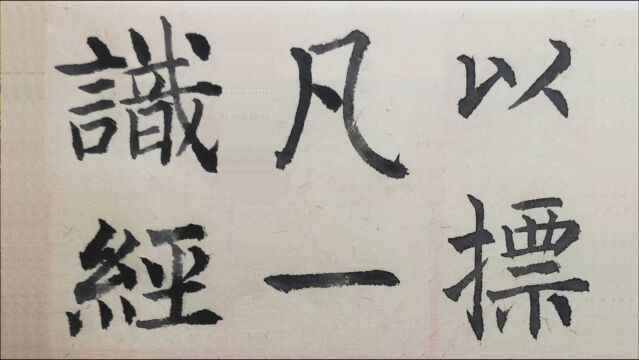 以摽
凡一
識經